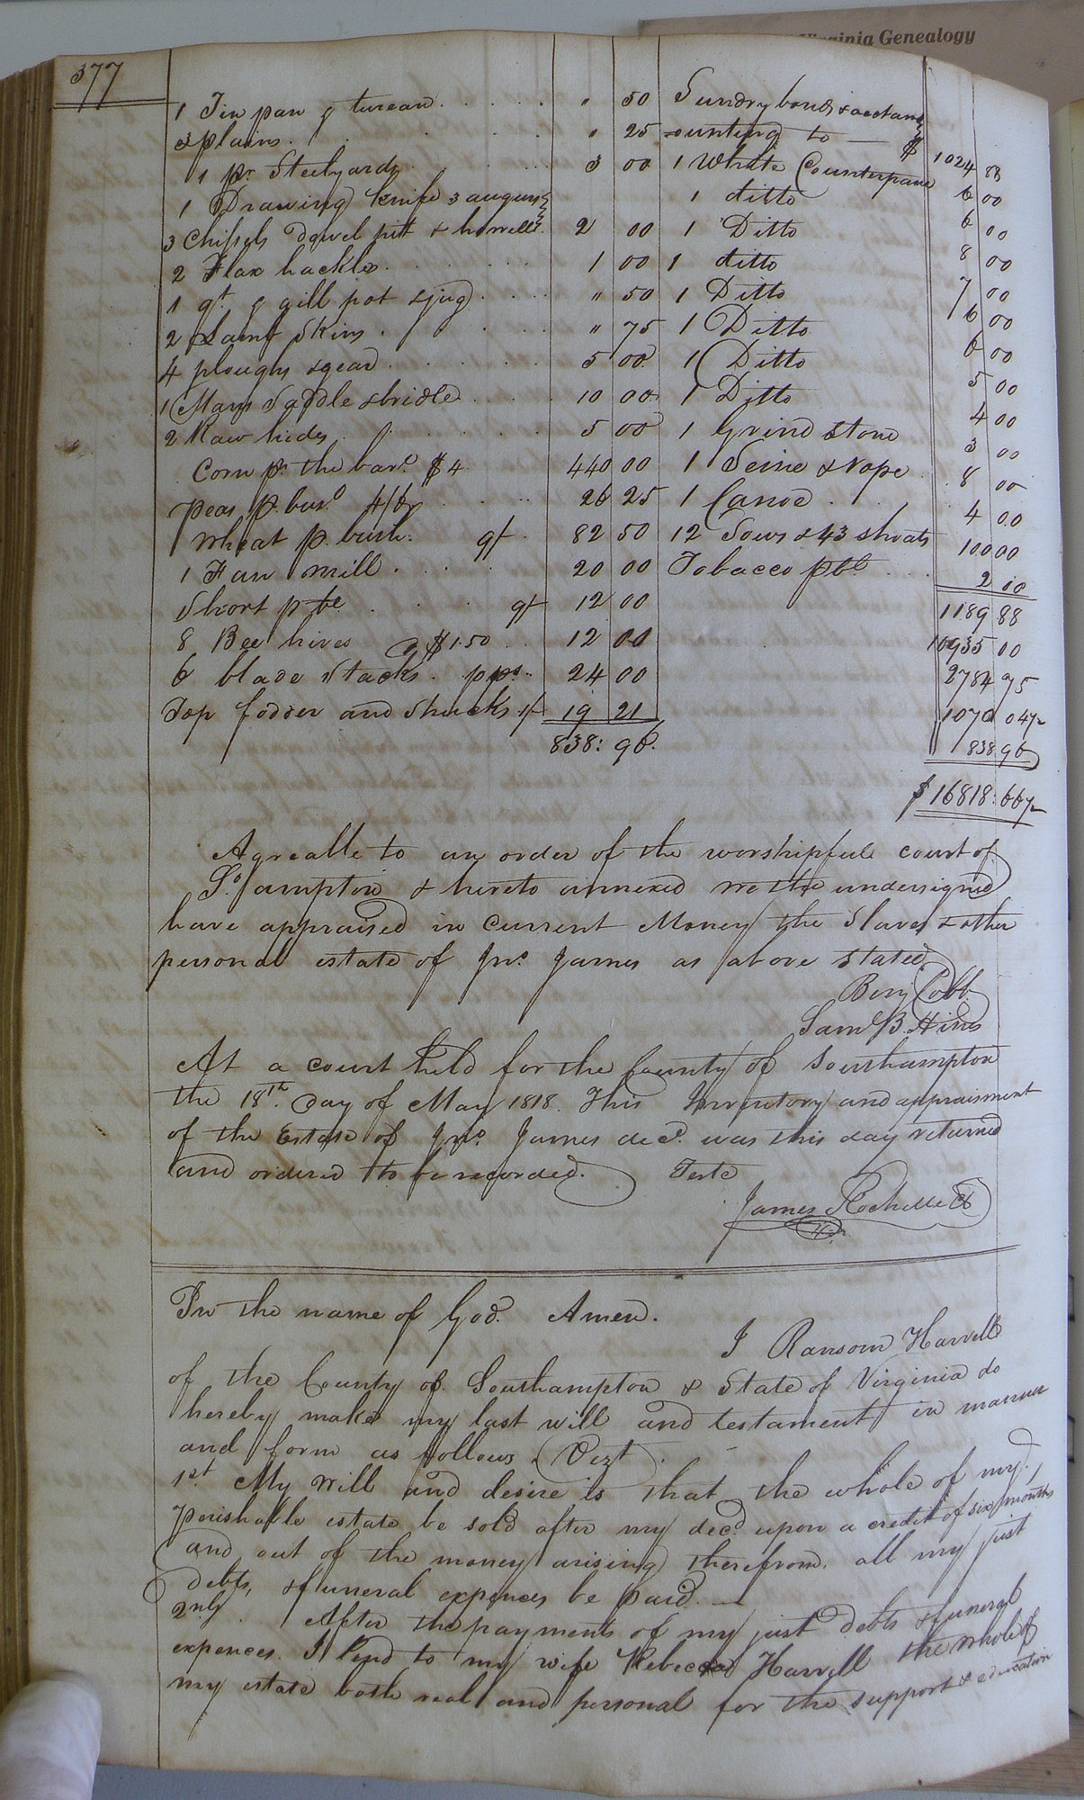 Virginia Genealogy
377
1 Tin pan & tureen . . . . . " 50
3 plains . . . . . " 25
1 pr. Steelyards . . . 3 00
1 Drawing knife 3 augurs
3 Chissels Dowel bitt & howells 2 00
2 Flax hackles . . . . 1 00
1 qt. & gill pot & jug . . . " 50
2 Lamb Skins . . . . " 75
4 ploughs & gear . . . . 5 00
1 Mans Saddle & bridle . . . 10 00
2 Raw hides . . . . 5 00
Corn pr. the barl. $4 440 00
peas p. bus. 4/6 . . 26 25
Wheat p. bush. qt. 82 50
1 Fan mill . . . . 20 00
Short p te . . . qt 12 00
8 Bee hives @ $1.50 . . 12 00
6 blade Stacks . pps . . 24 00
Top fodder and Shucks 19 21
838: 96.
Sundry bonds & acctam
ounting to — $ 1024 88
1 White Counterpane 6 00
1 ditto 6 00
1 Ditto 8 00
1 ditto 7 00
1 Ditto 6 00
1 Ditto 6 00
1 Ditto 5 00
1 Ditto 4 00
1 Grind Stone 3 00
1 Seine & rope 8 00
1 Canoe . . 4 00
12 Sows & 43 shoats 100 00
Tobacco . . . 2 00
1189 88
10935 00
2784 95
1070 04½
838 96
$ 16818: 66½
Agreable to an order of the worshipfull court of
So. ampton & hereto annexed we the undersigned
have appraised in current Money the Slaves & other
personal estate of Jno. James as above Stated
Benj. Cobb
Saml B. Hines
At a court held for the County of Southampton
the 18th. Day of May 1818. This Inventory and appraisment
of the Estate of Jno. James decd. was this day returned
and ordered to be recorded. Teste
James Rochelle Ck
In the name of God. Amen.
I Ransom Harvell
of the County of Southampton & State of Virginia do
hereby make my last will and testament in manner
and form as follows (Vizt)
1st My Will and desire is that the whole of my
perishable estate be sold after my decd. upon a credit of six months
and out of the money arising therefrom, all my just
debts, & funeral expences be paid. —
2nly After the payments of my just debts & funeral
expences. I lend to my wife Rebecca Harvell the whole of
my estate both real and personal for the support & education